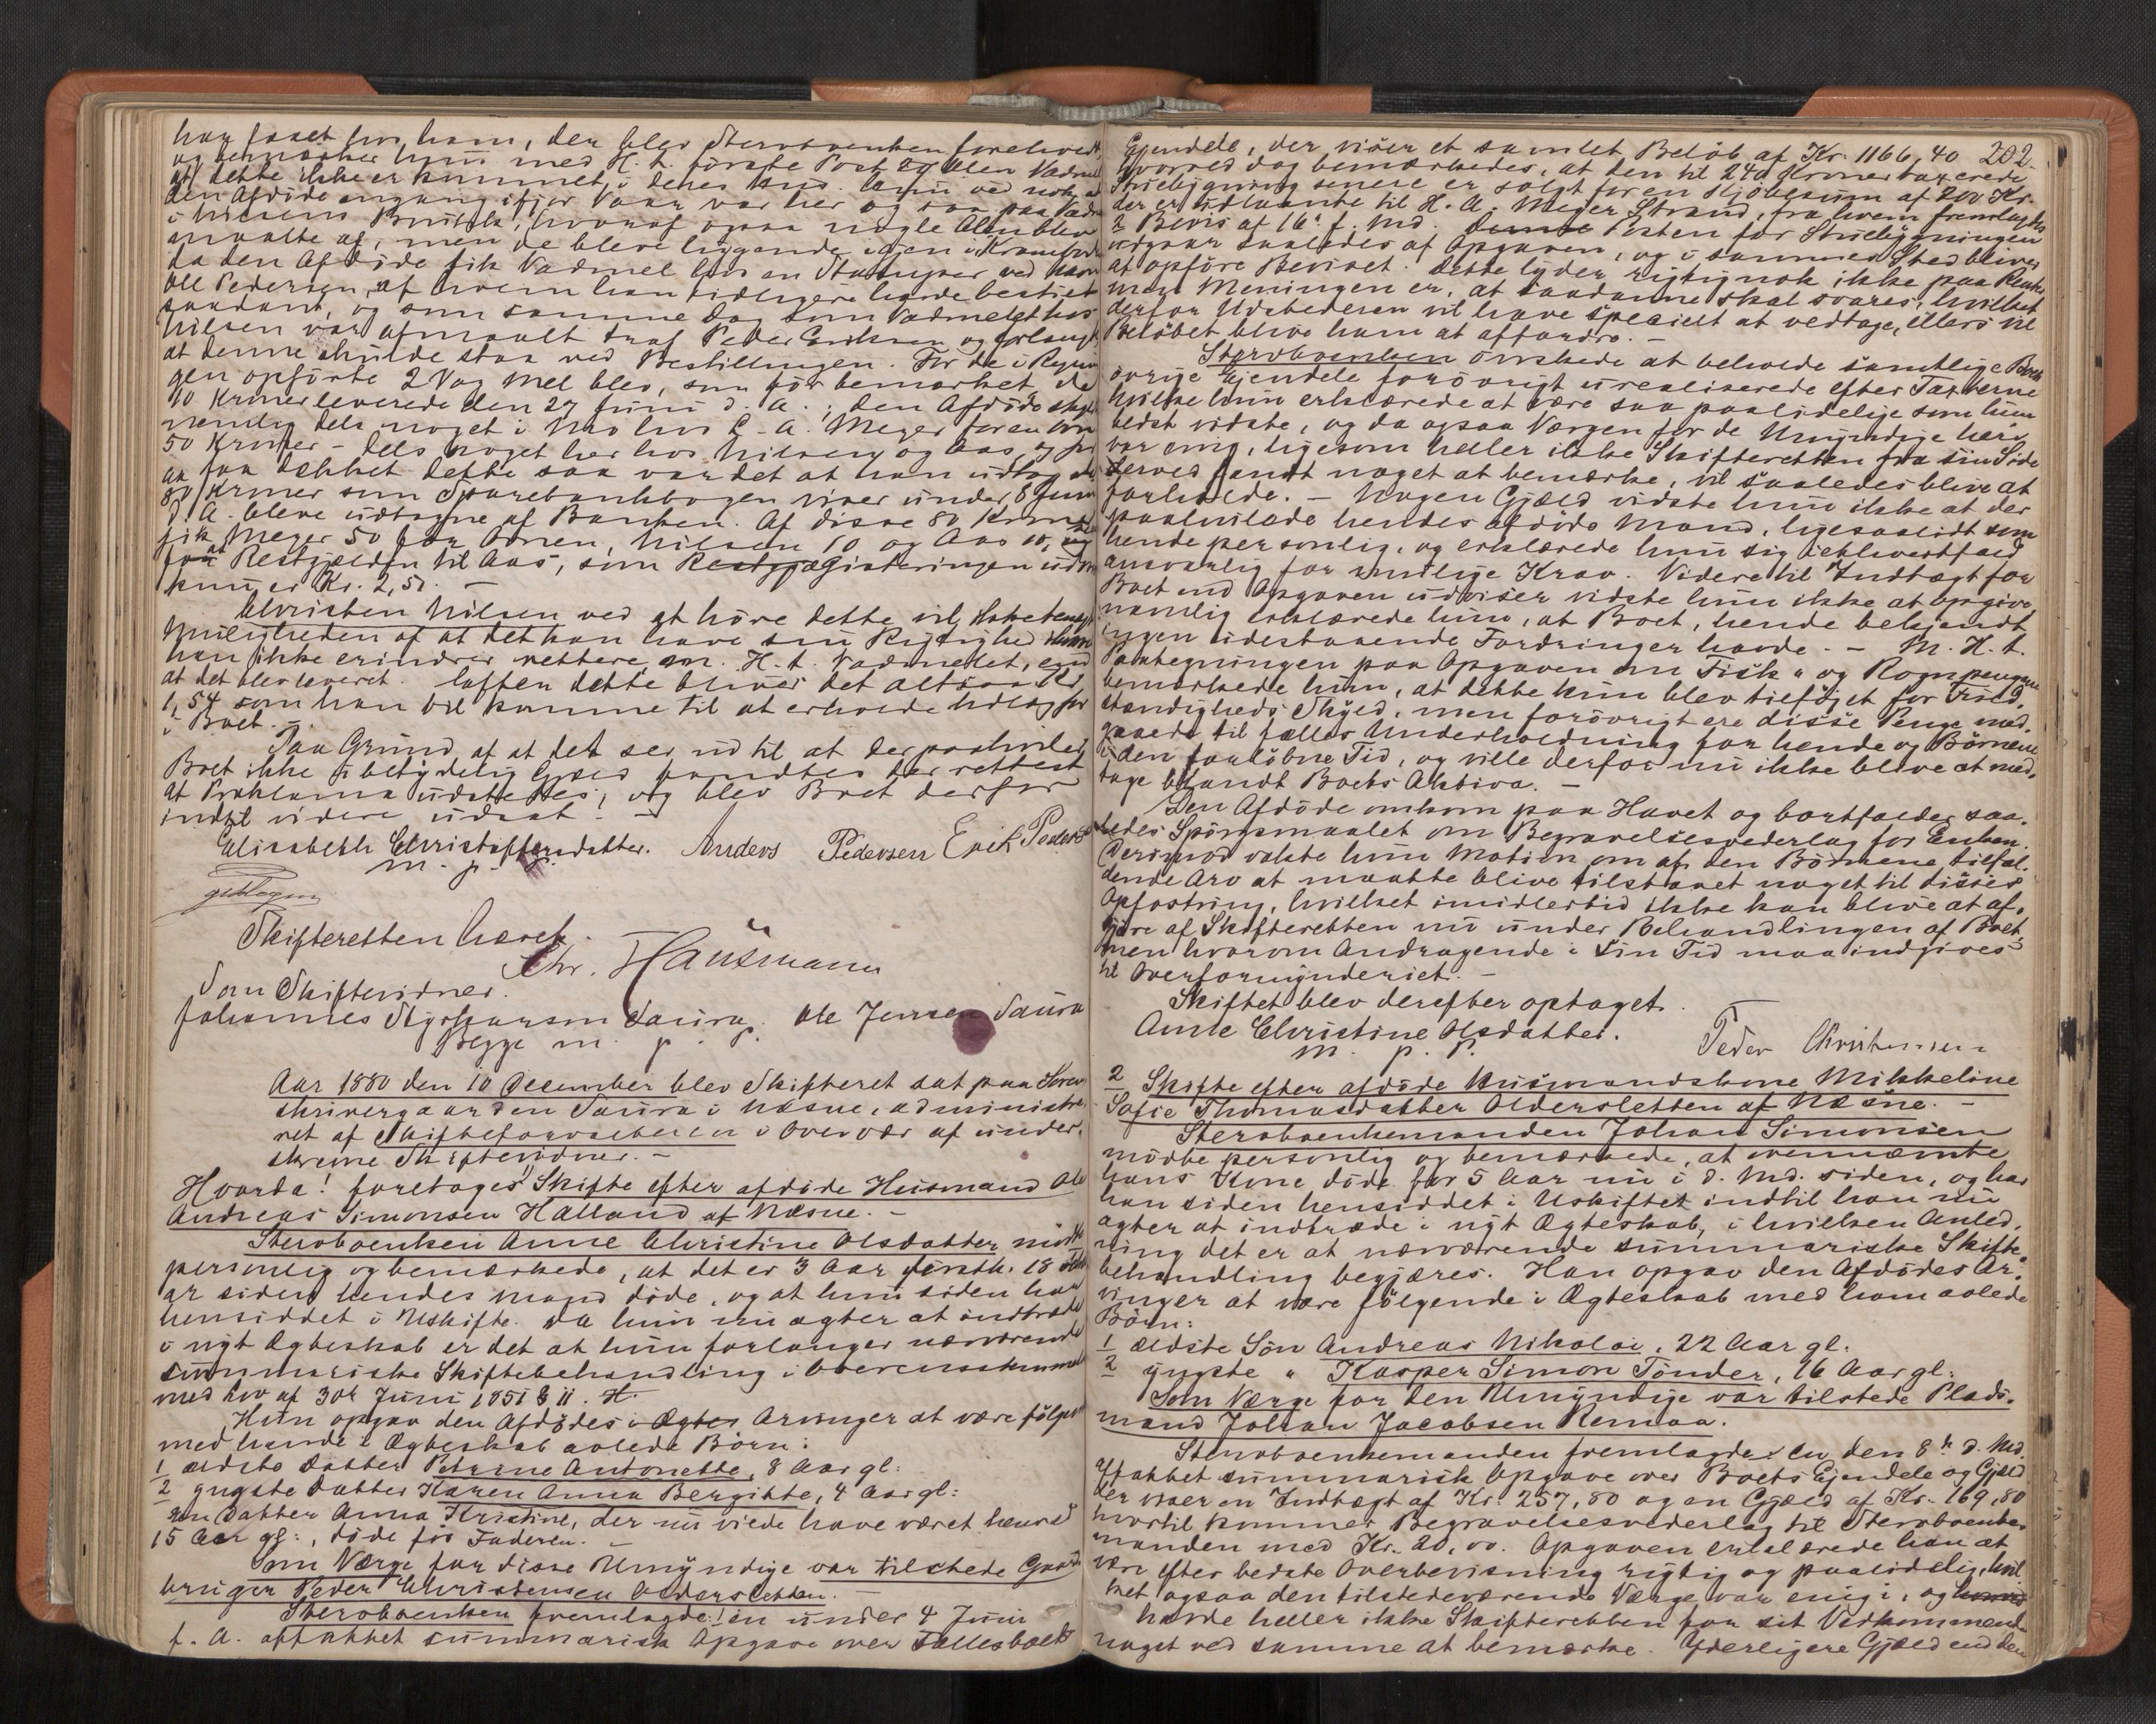 har faaet hos ham, der blev Sterboenken foreholdt,
og bemærker hun med H. t. første Post 29 Alen Vadmel
at dette ikke er kommet i deres hus.
den Afdøde engang ifjor Vaar var her og saa paa Vad-
i Nilsens Butik, hvoraf ogsaa nogle Alen blev
maalte af, men de bleve liggende igjen i Kramboden
da den Afdøde fik Vadmel hos en ved Navn
Ole Pedersen, af hvem han tidligere havde bestilt
saadant, og som samme Dag som Vadmelet hos
Nilsen var afmaalt traf Peder Eriksen og forlangte
at denne skulde staa ved Bestillingen. For de i Regnin
gen opførte 2 Vog Mel blev, som før bemærket, de
10 Kroner leverede den 27 Juni d. A.; den Afdøde skyldte
nemlig dels noget i Mo hos L. A. Meyer for en
50 Kroner – dels noget her hos Nilsen og Aas og for
at faa dækket dette saa var det at han udtog de
80 Kroner som Sparebankbogen viser under 8 Juni
d. A. bleve udtagne af Banken. Af disse 80 Kroner
fik Meyer 50 for Ornen, Nilsen 10 og Aas 10,
Restgjælden til Aas, som Registeringen
kun er Kr. 2,51. –
Christen Nilsen ved at høre dette vil ikke benegte
Muligheden af at det kan have sin Rigtighed
han ikke erindrer rettere m. H. t. Vadmelet, end
at det blev leveret. Efter dette bliver det altsaa Kr.
1,54 som han vil komme til at erholde Udlæg for
i Boet. –
Paa Grund af at det ser ud til at der paahviler
Boet ikke ubetydelig Gjæld fandtes det rettest
at Proklama udstedes, og blev Boet derfor
indtil videre udsat. –
Elisabeth Christoffersdatter. Anders Pedersen Erik Peders
m. p. P.
Skifteretten hævet.
Chr. Hausmann
Som Skiftevidner.
Johannes Saura. Ole Jensen Saura
Begge m. p. P.
Aar 1880 den 10 December blev Skifteret sat paa Soren
skrivergaarden Saura i Næsne, administre-
ret af Skifteforvalteren i Overvær af under-
skrevne Skiftevidner. –
Hvorda! foretoges 1) Skifte efter afdøde Husmand Ole
Andreas Simonsen Halland af Næsne. –
Sterboenken Anne Christine Olsdatter mødte
personlig og bemærkede, at det er 3 Aar førstk. 18
ar siden hendes Mand døde, og at hun siden har
hensiddet i Uskifte. Da hun nu agter at indtræde
i nyt Ægteskab er det at hun forlanger nærværende
summariske Skiftebehandling i Overensstemmelse
med Lov af 30te Juni 1851 § 11. H.
Hun opgav den Afdødes Arvinger at være følgende
med hende i Ægteskab avlede Børn:
1 ældste Datter Petrine Antonette, 8 Aar gl:
2 yngste Datter Karen Anna Bergitte, 4 Aar gl:
en Datter Anna Kristine, der nu vilde have været henved
15 Aar gl:, døde før Faderen. –
Som Værge for disse Umyndige var tilstede Gaard
bruger Peder Christensen Oldersletten. –
Sterboenken fremlagde: en under 4 Juni
f. A. optakket summarisk Opgave over Fællesboets
202
Ejendele, der viser et samlet Beløb af Kr. 1166,40
hvorved dog bemærkedes, at den til 240 Kroner taxerede
Stuebygning senere er solgt for en Kjøbesum af 200 Kr.
der er udlaante til H. A. Meyer Strand, fra hvem fremlagdes
2 Bevis af 16de f. Md. Posten for Stuebygningen
udgaar saaledes af Opgaven, og i sammes Sted bliver
at opføre Beviset. Dette lyder rigtignok ikke paa Rente
men Meningen er, at saadanne skal svares, hvilket
derfor Udstederen vil have specielt at vedtage, ellers vil
Beløbet blive ham at affordre. –
Sterboenken ønskede at beholde samtlige Boets
øvrige Ejendele forøvrigt urealiserede efter Taxterne
hvilke hun erklærede at være saa paalidelige som hun
bedst vidste, og da ogsaa Værgen for de Umyndige heri
var enig, ligesom heller ikke Skifteretten fra sin Side
derved fandt noget at bemærke, vil saaledes blive at
forholde. – Nogen Gjæld vidste hun ikke at der
paahvilede hendes afdøde Mand, ligesaalidt som
hende personlig, og erklærede hun sig i ethvertfald
ansvarlig for mulige Krav. Videre til Indtægt for
Boet end Opgaven udviser vidste hun ikke at opgive,
nemlig erklærede hun, at Boet, hende bekjendt
ingen udestaaende Fordringer havde. – M. H. t.
Paategningen paa Opgaven om Fisk- og Rognpengene
bemærkede hun, at dette kun blev tilføjet for Fuld-
stændigheds Skyld, men forøvrigt ere disse Penge med-
gaaede til fælles Underholdning for hende og Børnene
i den forløbne Tid, og ville derfor nu ikke blive at med-
tage blandt Boets Aktiva. –
Den Afdøde omkom paa Havet og bortfalder saa-
ledes Spørgsmaalet om Begravelsesvederlag for Enken.
Derimod vakte hun Motion om af den Børnene tilfal-
dende Arv at maatte blive tilstaaet noget til disses
Opfostring, hvilket imidlertid ikke kan blive at af-
gjøre af Skifteretten nu under Behandlingen af Boet,
men hvorom Andragende i sin Tid maa indgives
til Overformynderiet. –
Skiftet blev derefter optaget.
Anne Christine Olsdatter. Peder Christensen
m. p. P.
2 Skifte efter afdøde Husmandskone Mikkeline
Sofie Thomasdatter Oldersletten af Næsne. –
Sterboenkemanden Johan Simonsen
mødte personlig og bemærkede, at ovennævnte
hans Kone døde for 5 Aar nu i d. Md. siden, og har
han siden hensiddet i Uskiftet indtil han nu
agter at indtræde i nyt Ægteskab, i hvilken Anled-
ning det er at nærværende summariske Skifte-
behandling begjæres. Han opgav den Afdødes Ar-
vinger at være følgende i Ægteskab med ham avlede
Børn:
1 ældste Søn Andreas Nikolai, 22 Aar gl.
2 yngste " Kasper Simon Tønder, 16 Aar gl:
Som Værge for den Umyndige var tilstede Plads-
mand Johan Jacobsen Remaa.
Sterboenkemanden fremlagde: en den 8de d. Md.
optakket summarisk Opgave over Boets Ejendele og Gjæld
der viser en Indtægt af Kr. 257,80 og en Gjæld af Kr. 169,80
hvortil kommer Begravelsesvederlag til Sterboenke-
manden med Kr. 20,00. Opgaven erklærede han at
være efter bedste Overbevisning rigtig og paalidelig, hvil-
ket ogsaa den tilstedeværende Værge var enig i, og
havde heller ikke Skifteretten for sit Vedkommende
noget ved samme at bemærke. Yderligere Gjæld end den